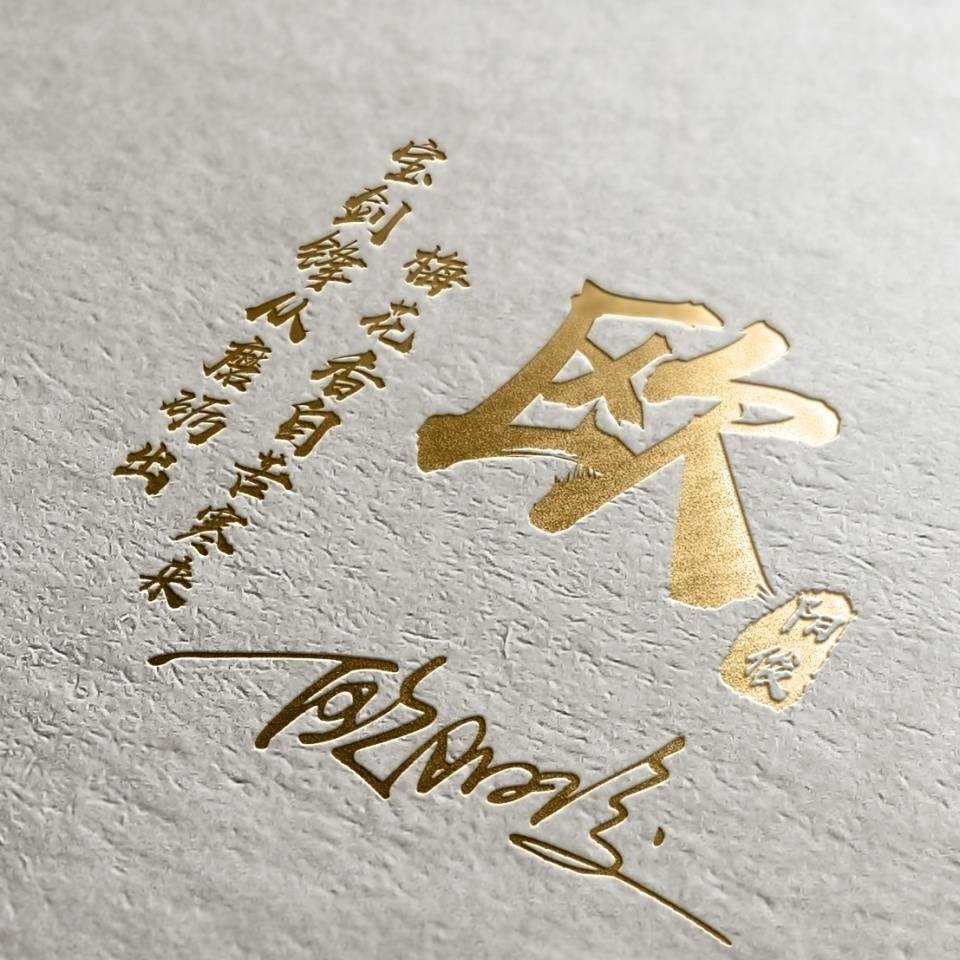 宝剑锋从磨砺出
梅花香自苦寒来
欧
阳俊